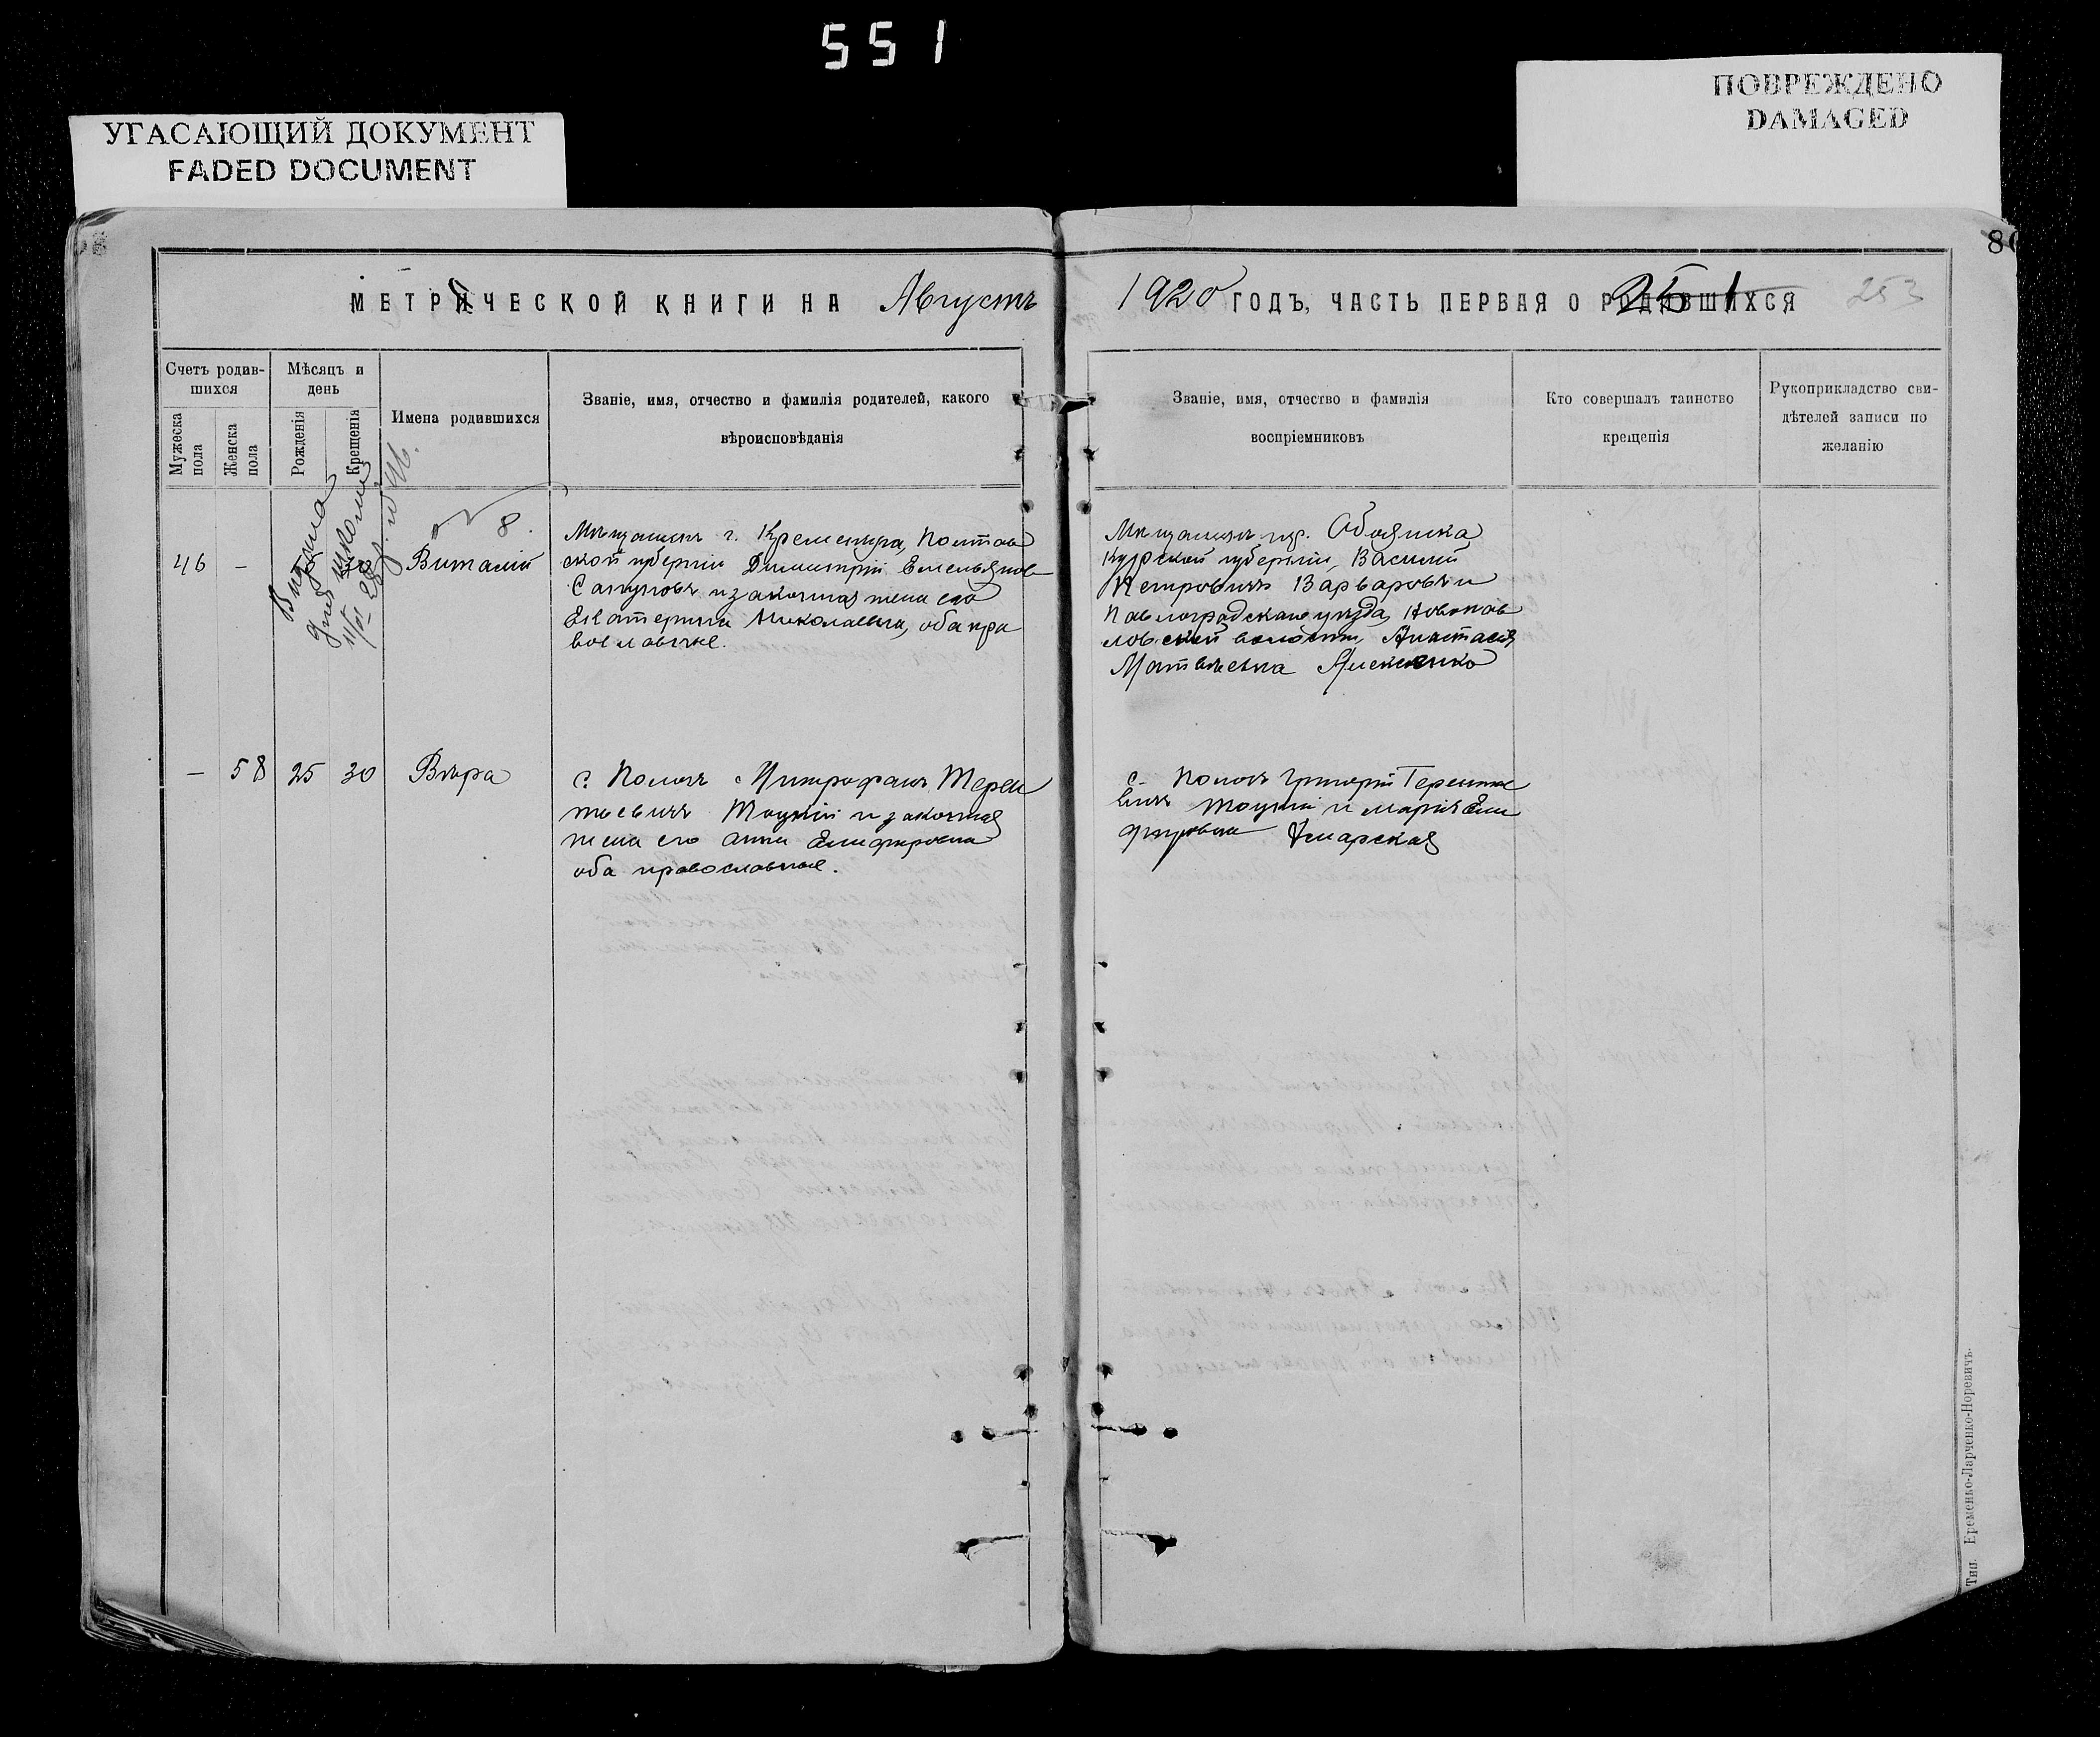 551
УГАСАЮЩИЙ ДОКУМЕНТ
FADED DOCUMENT
ПОВРЕЖДЕНО
DAMAGED
8
МЕТРИЧЕСКОЙ КНИГИ НА Августъ
1920 ГОДЪ, ЧАСТЬ ПЕРВАЯ О РОДИВШИХСЯ
251
253
Счетъ родив-
шихся
Мужеска
пола
Женска
пола
Мѣсяцъ и
день
Рожденія
Крещенія
Имена родившихся
Званіе, имя, отчество и фамилія родителей, какого
вѣроисповѣданія
Званіе, имя, отчество и фамилія
воспріемниковъ
Кто совершалъ таинство
крещенія
Рукоприкладство сви-
дѣтелей записи по
желанію
46 –
8.
Виталій
Мѣщанинъ г. Кременчуга, Полтав
ской губерніи Димитрій Емельянов
и законная жена его
Екатерина Николаевна, оба пра
вославные.
Мѣщанинъ гор. Обояника
Курской губерніи, Василій
Петровичъ Варваровъ и
Павлоградскаго уѣзда, Новопав
ловской волости, Анастасія
Матвѣевна
– 58 25 30 Вѣра
с. Пологъ Митрофанъ Терен
тьевичъ Тоцкій и законная
жена его Анна
оба православные.
с. Пологъ Григорій Терентье
вичъ Тоцкій и Марія
Тип. Еременко-Ларченко-Норевичъ.